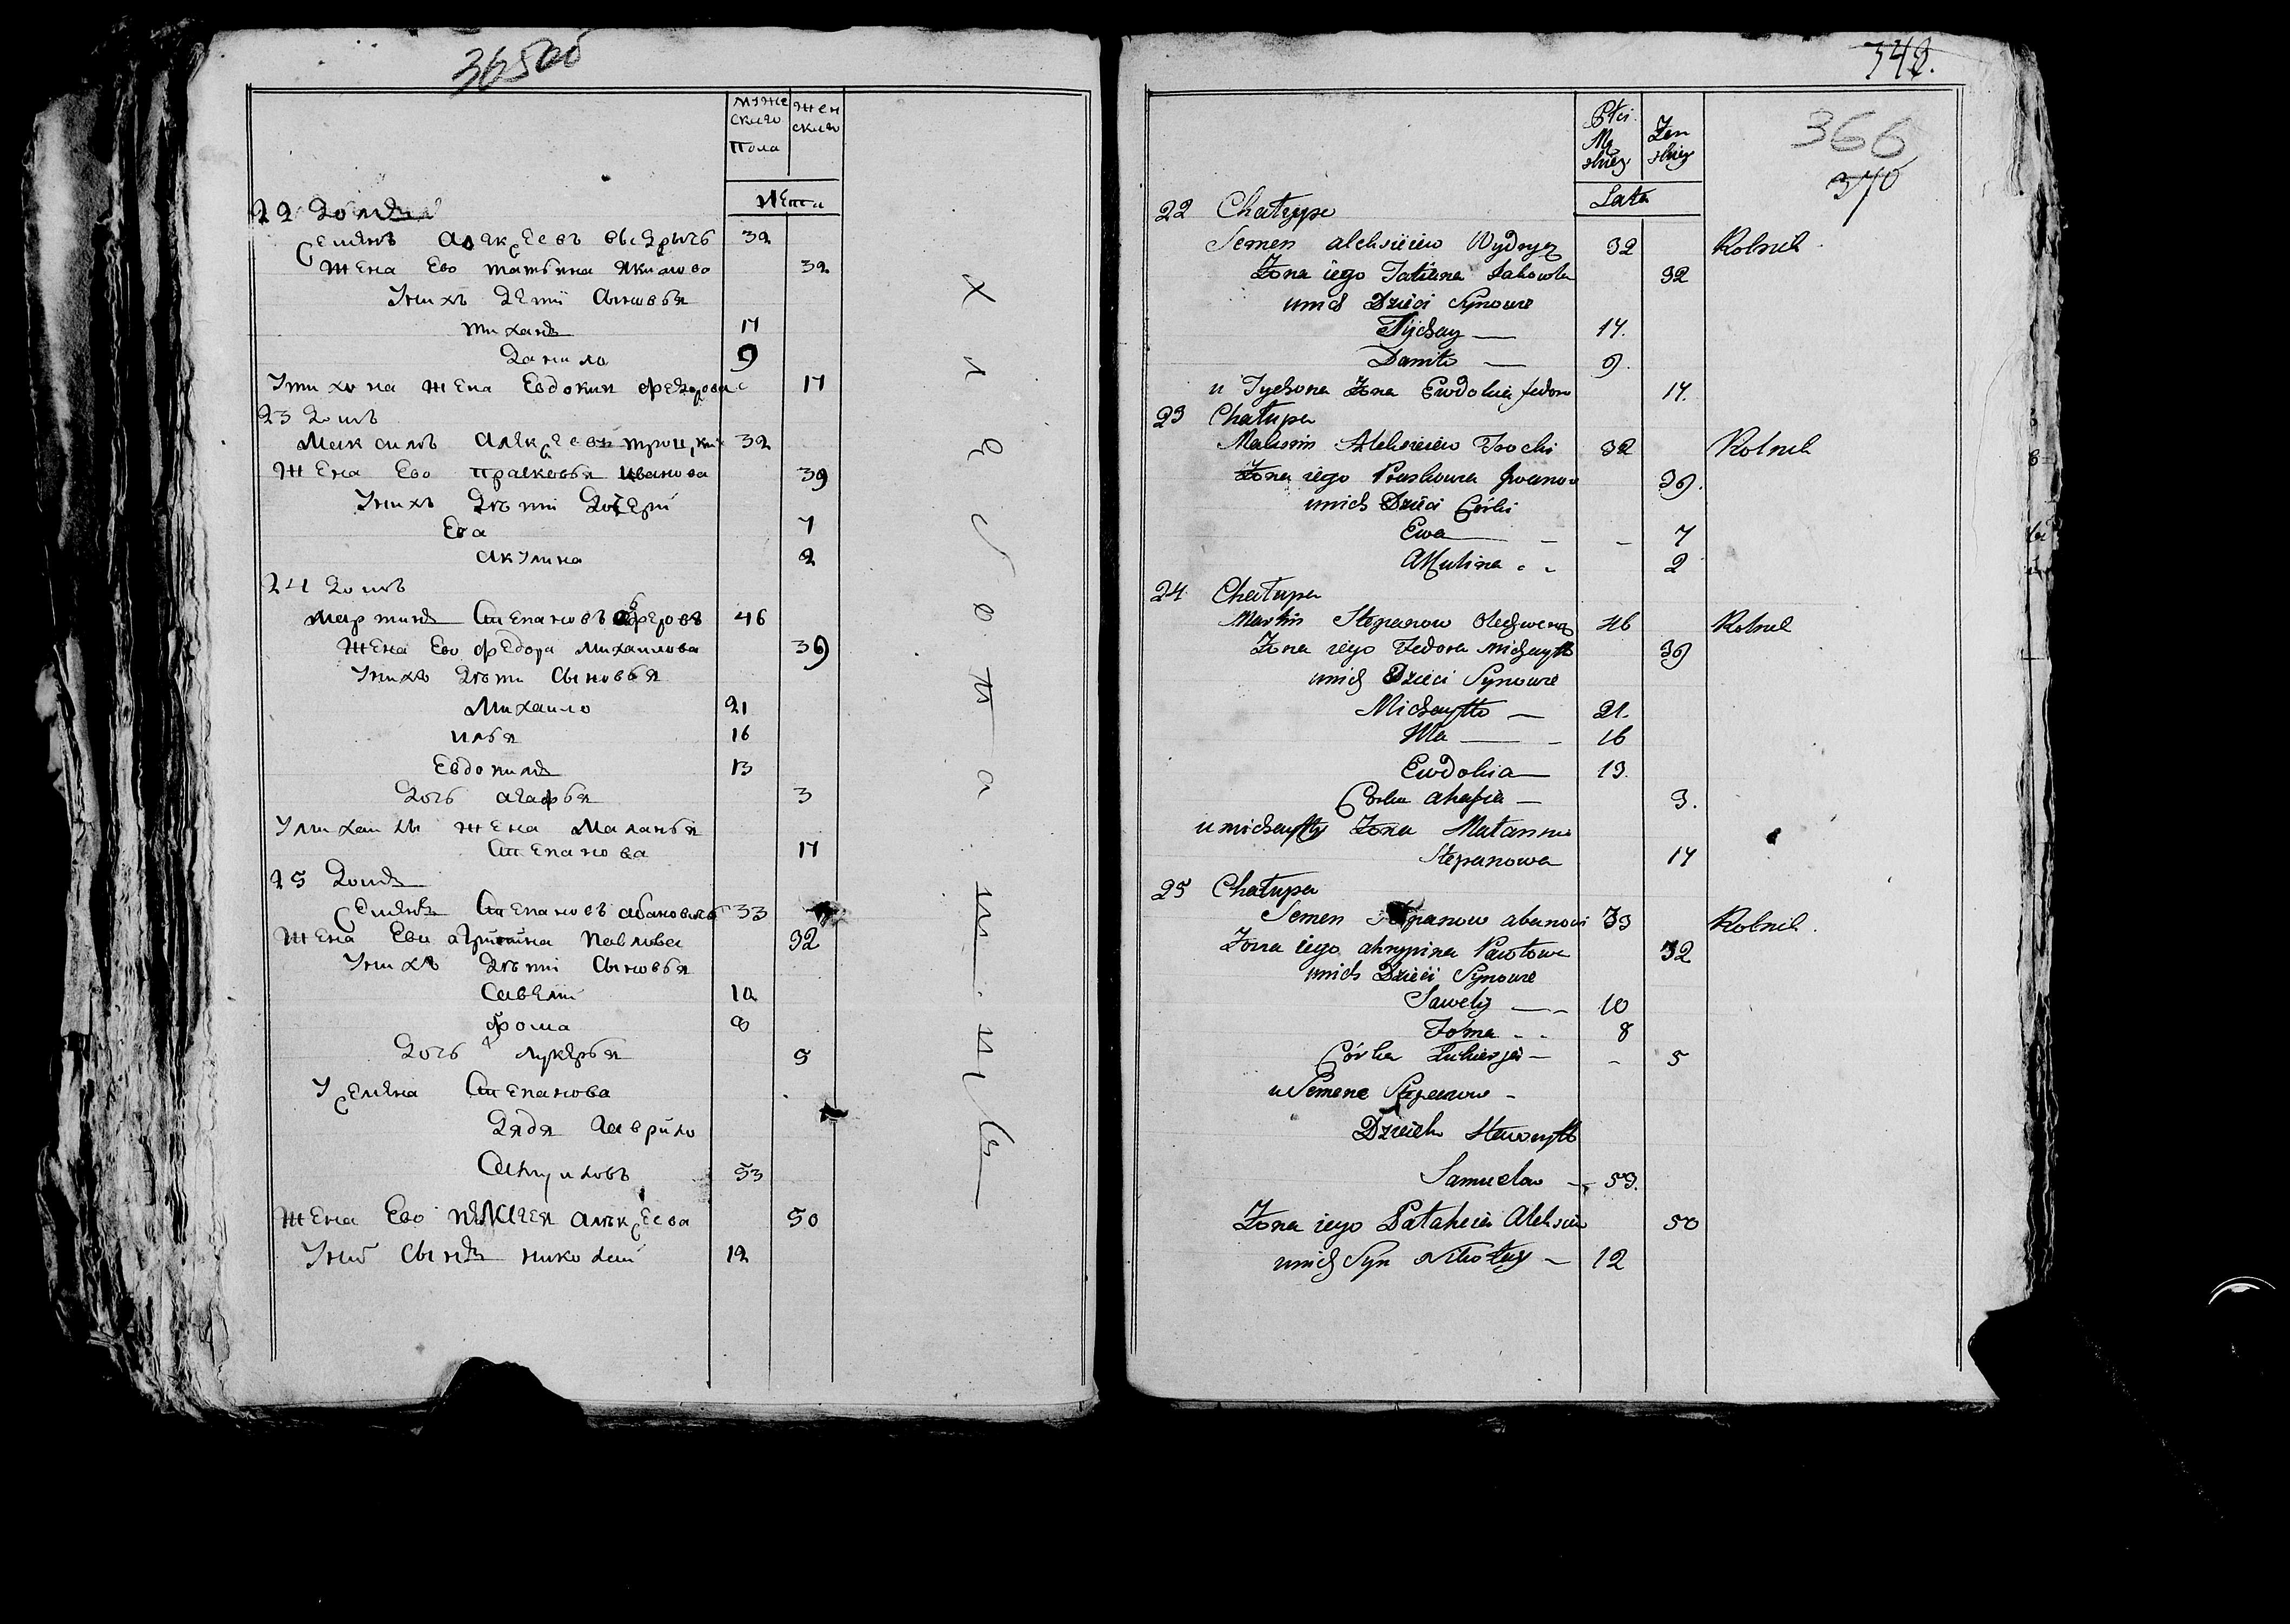 365об
муже
скаго
Пола
жен
скаго
Лета
22 Домъ
Семенъ Алексеевъ Выдрычъ 32
Жена Ево татьяна Якимова 32
Унихъ Дети Сыновья
тиханъ 17
Данило 9
Утихона Жена Евдокия федорова 17
23 Домъ
Максимъ Алексеевъ троцки 32
Жена Ево прасковья Иванова 39
Унихъ Дѣти Дочери
Ева 7
Акулина 2
24 Домъ
мартинъ Степановъ 46
Жена Ево федора Михаилова 39
Унихъ Дѣти Сыновья
Михаило 21
илья 16
Евдокимъ 13
Дочь агафья 3
Умихаилы Жена Маланья
Степанова 17
25 Домъ
Семенъ Степановъ абановичъ 33
Жена Ево агрипина Павлова 32
Унихъ Дѣти Сыновья
Савели 10
фома 8
Дочь лукерья 5
Усемена Степанова
Дядя Гаврило
Самуиловъ 53
Жена Ево Алексеева 50
Унихъ Сынъ николай 12
хлебопашцы
349.
366
370
Płci
Mę
skiey
Żen
skiey
Lata
22 Chałupa
Semen alexieiew Wydrycz 32 Rolnik
Żona iego Tatiana Jakowla 32
unich Dzieci Synowie
Tychay — 17.
Daniło — 9.
u Tychona Żona Ewdokia fedoro 17.
23 Chałupa
Maksim Alexieiew Trocki 32 Rolnik
Żona iego Praskowia Jwanow 39.
unich Dzieci Córki
Ewa — 7
Akulina 2
24 Chałupa
Martin Stepanow 46 Rolnik
Żona iego Fedora Michayło 39
unich Dzieci Synowie
Michayło — 21.
Ilia — 16
Ewdokia — 13.
Córka ahafia — 3.
u michayły Żona Małannia
Stepanowa 17
25 Chałupa
Semen Stepanow abanowi 33 Rolnik
Żona iego ahrypina Pawłowa 32
unich Dzieci Synowie
Sawely — 10
Foma 8
Córka Łukierja — 5
u Semena Stepanow -
Dziadko Hawryło
Samuelow — 53.
Żona iego Pałaheia Alexie 50
unich Syn Nikołay — 12